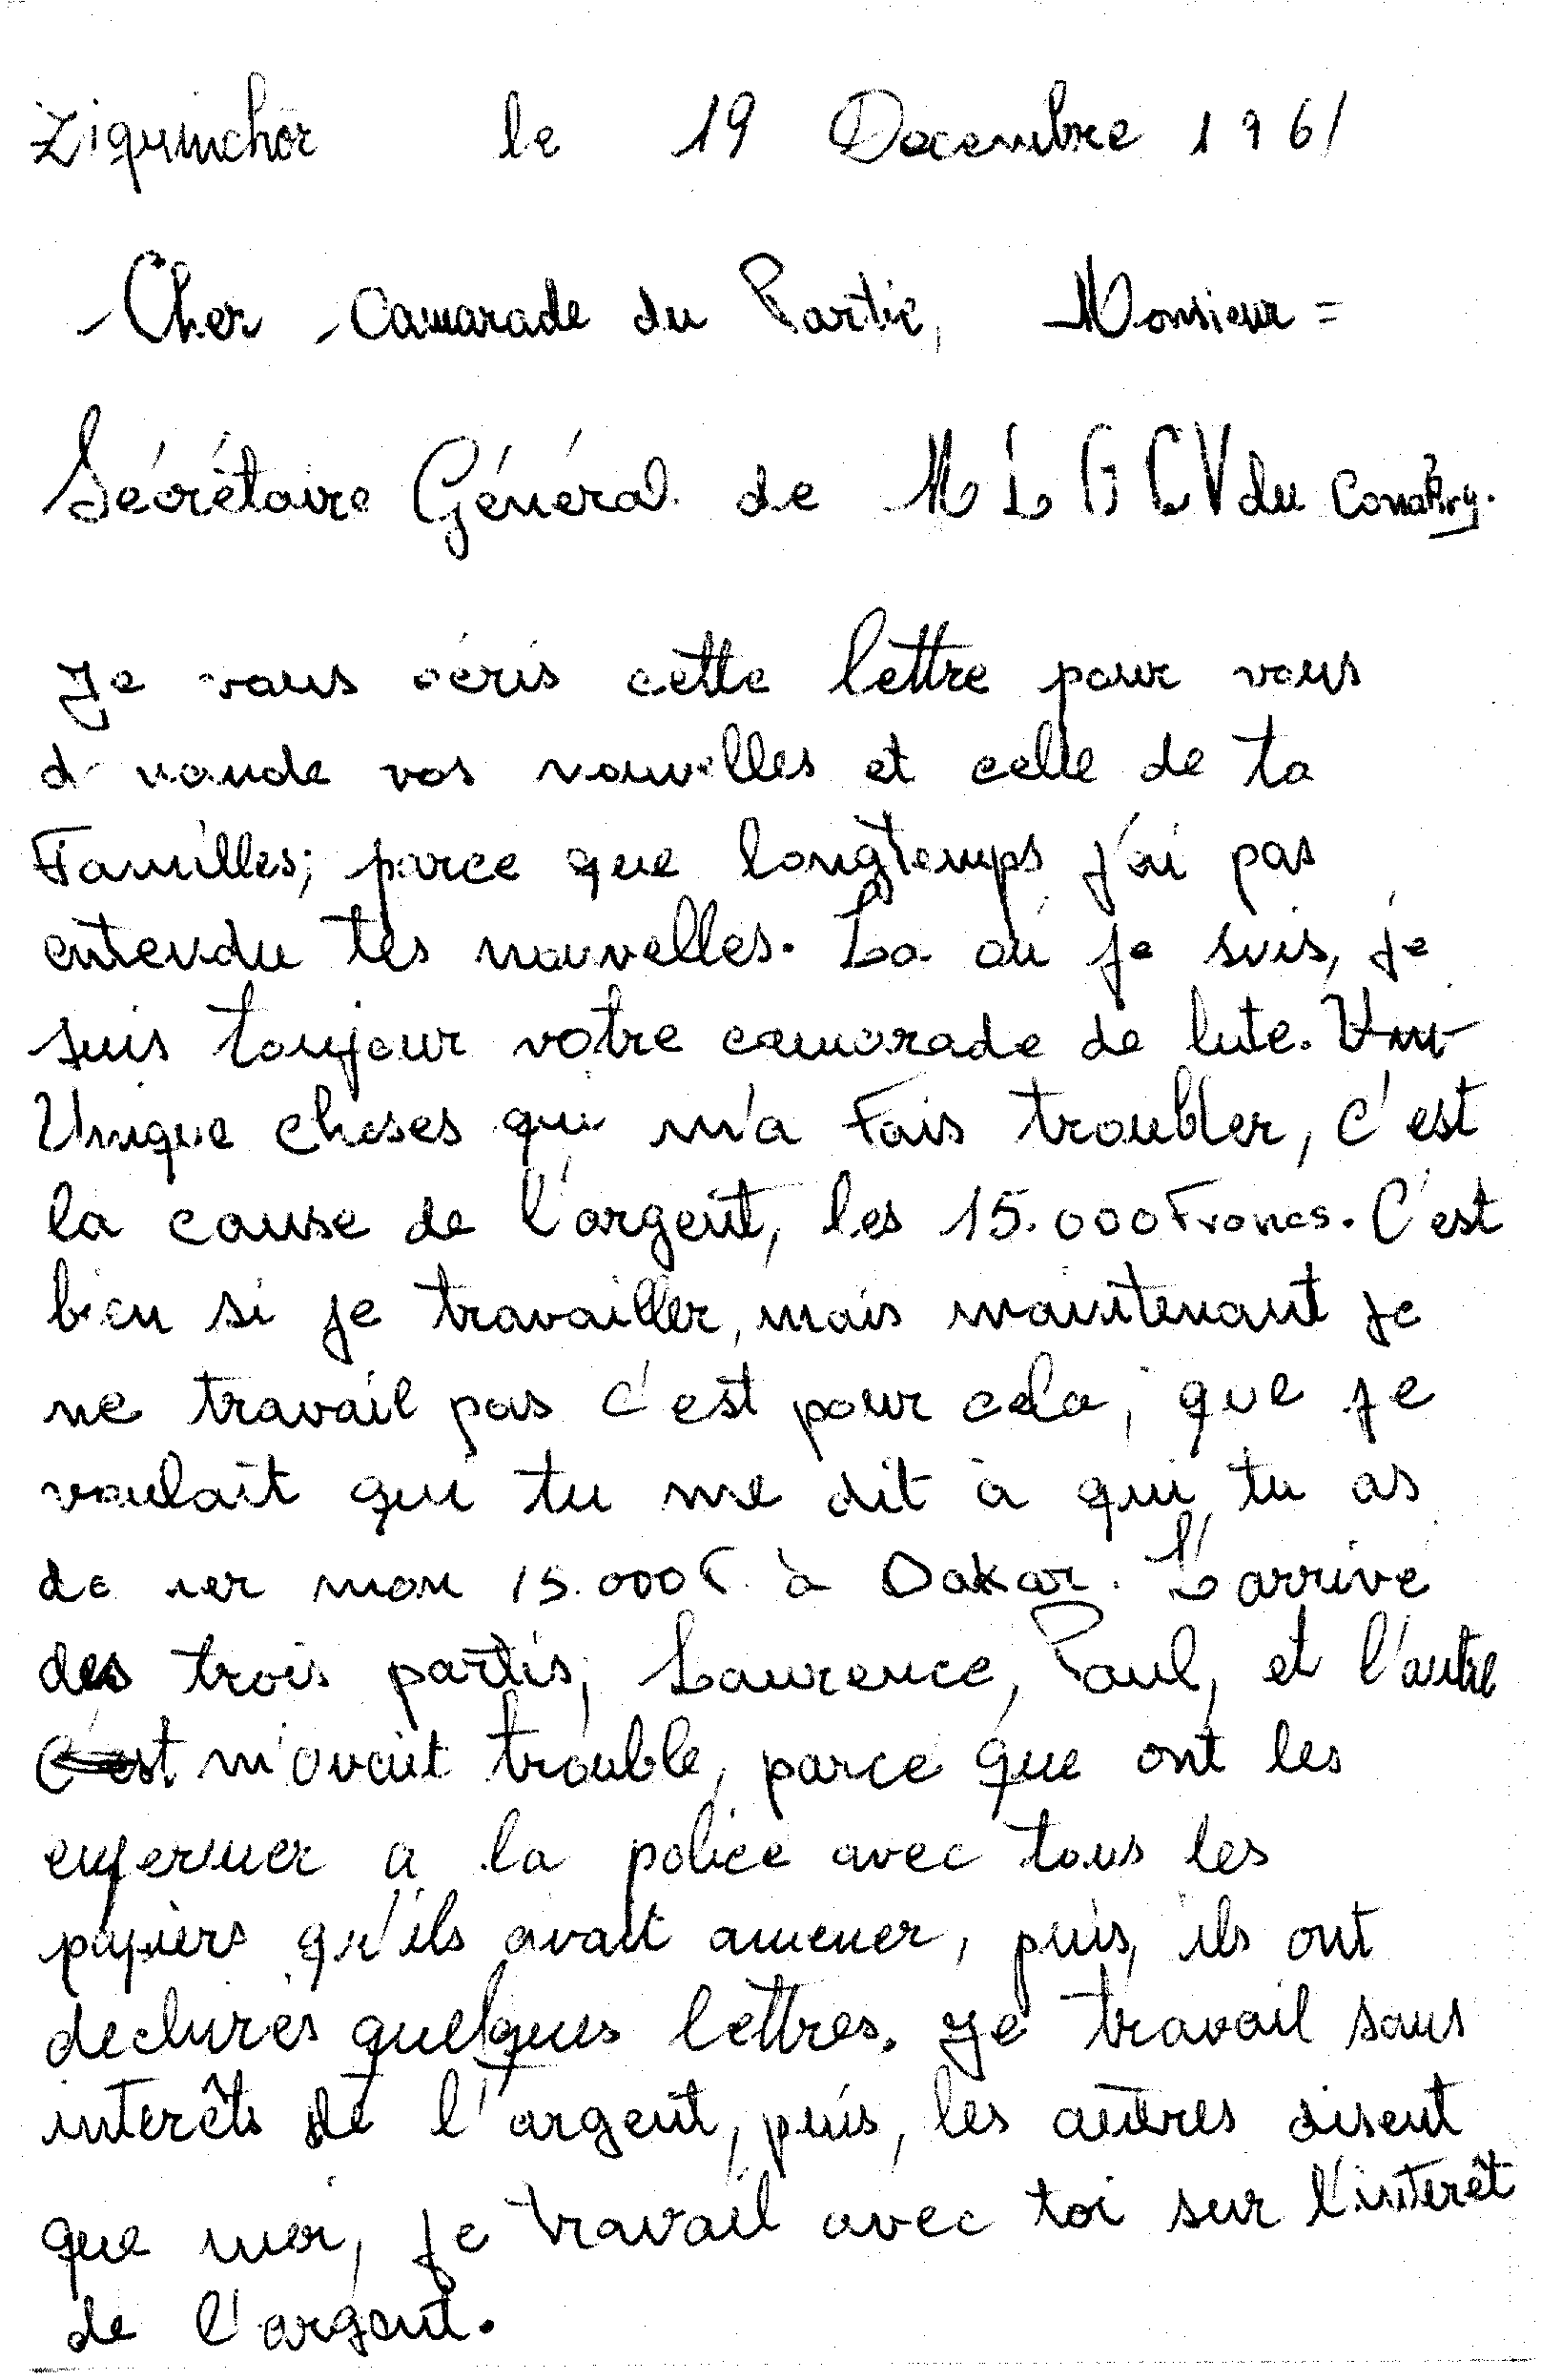 Ziguinchor le 19 Decembre 1961
- Cher - Camarade du Partie, Monsieur =
Sécrétaire Général de MLGCV du Conakry.
Je vous écris cette lettre pour vous
vos nouvelles et celle de ta
Familles; parce que longtemps j'ai pas
entendu tes nouvelles. La où je suis, je
suis toujour votre camarade de lute.
Unique choses qui m'a Fais troubler, c'est
la cause de l'argent, les 15.000 Francs. C'est
bien si je travailler, mais maintenant je
ne travail pas c'est pour cela, que je
voulait que tu me dit à qui tu as
mon 15.000 F. à Dakar. L'arrivé
des trois partis, Laurence, Paul, et l'autre
c'est m'avait trouble, parce que ont les
enfermer a la police avec tous les
papiers qu'ils avait amener, puis, ils ont
dechirés quelques lettres. Je travail sans
interêts de l'argent, puis, les autres disent
que moi, je travail avec toi sur l'interêt
de l'argent.